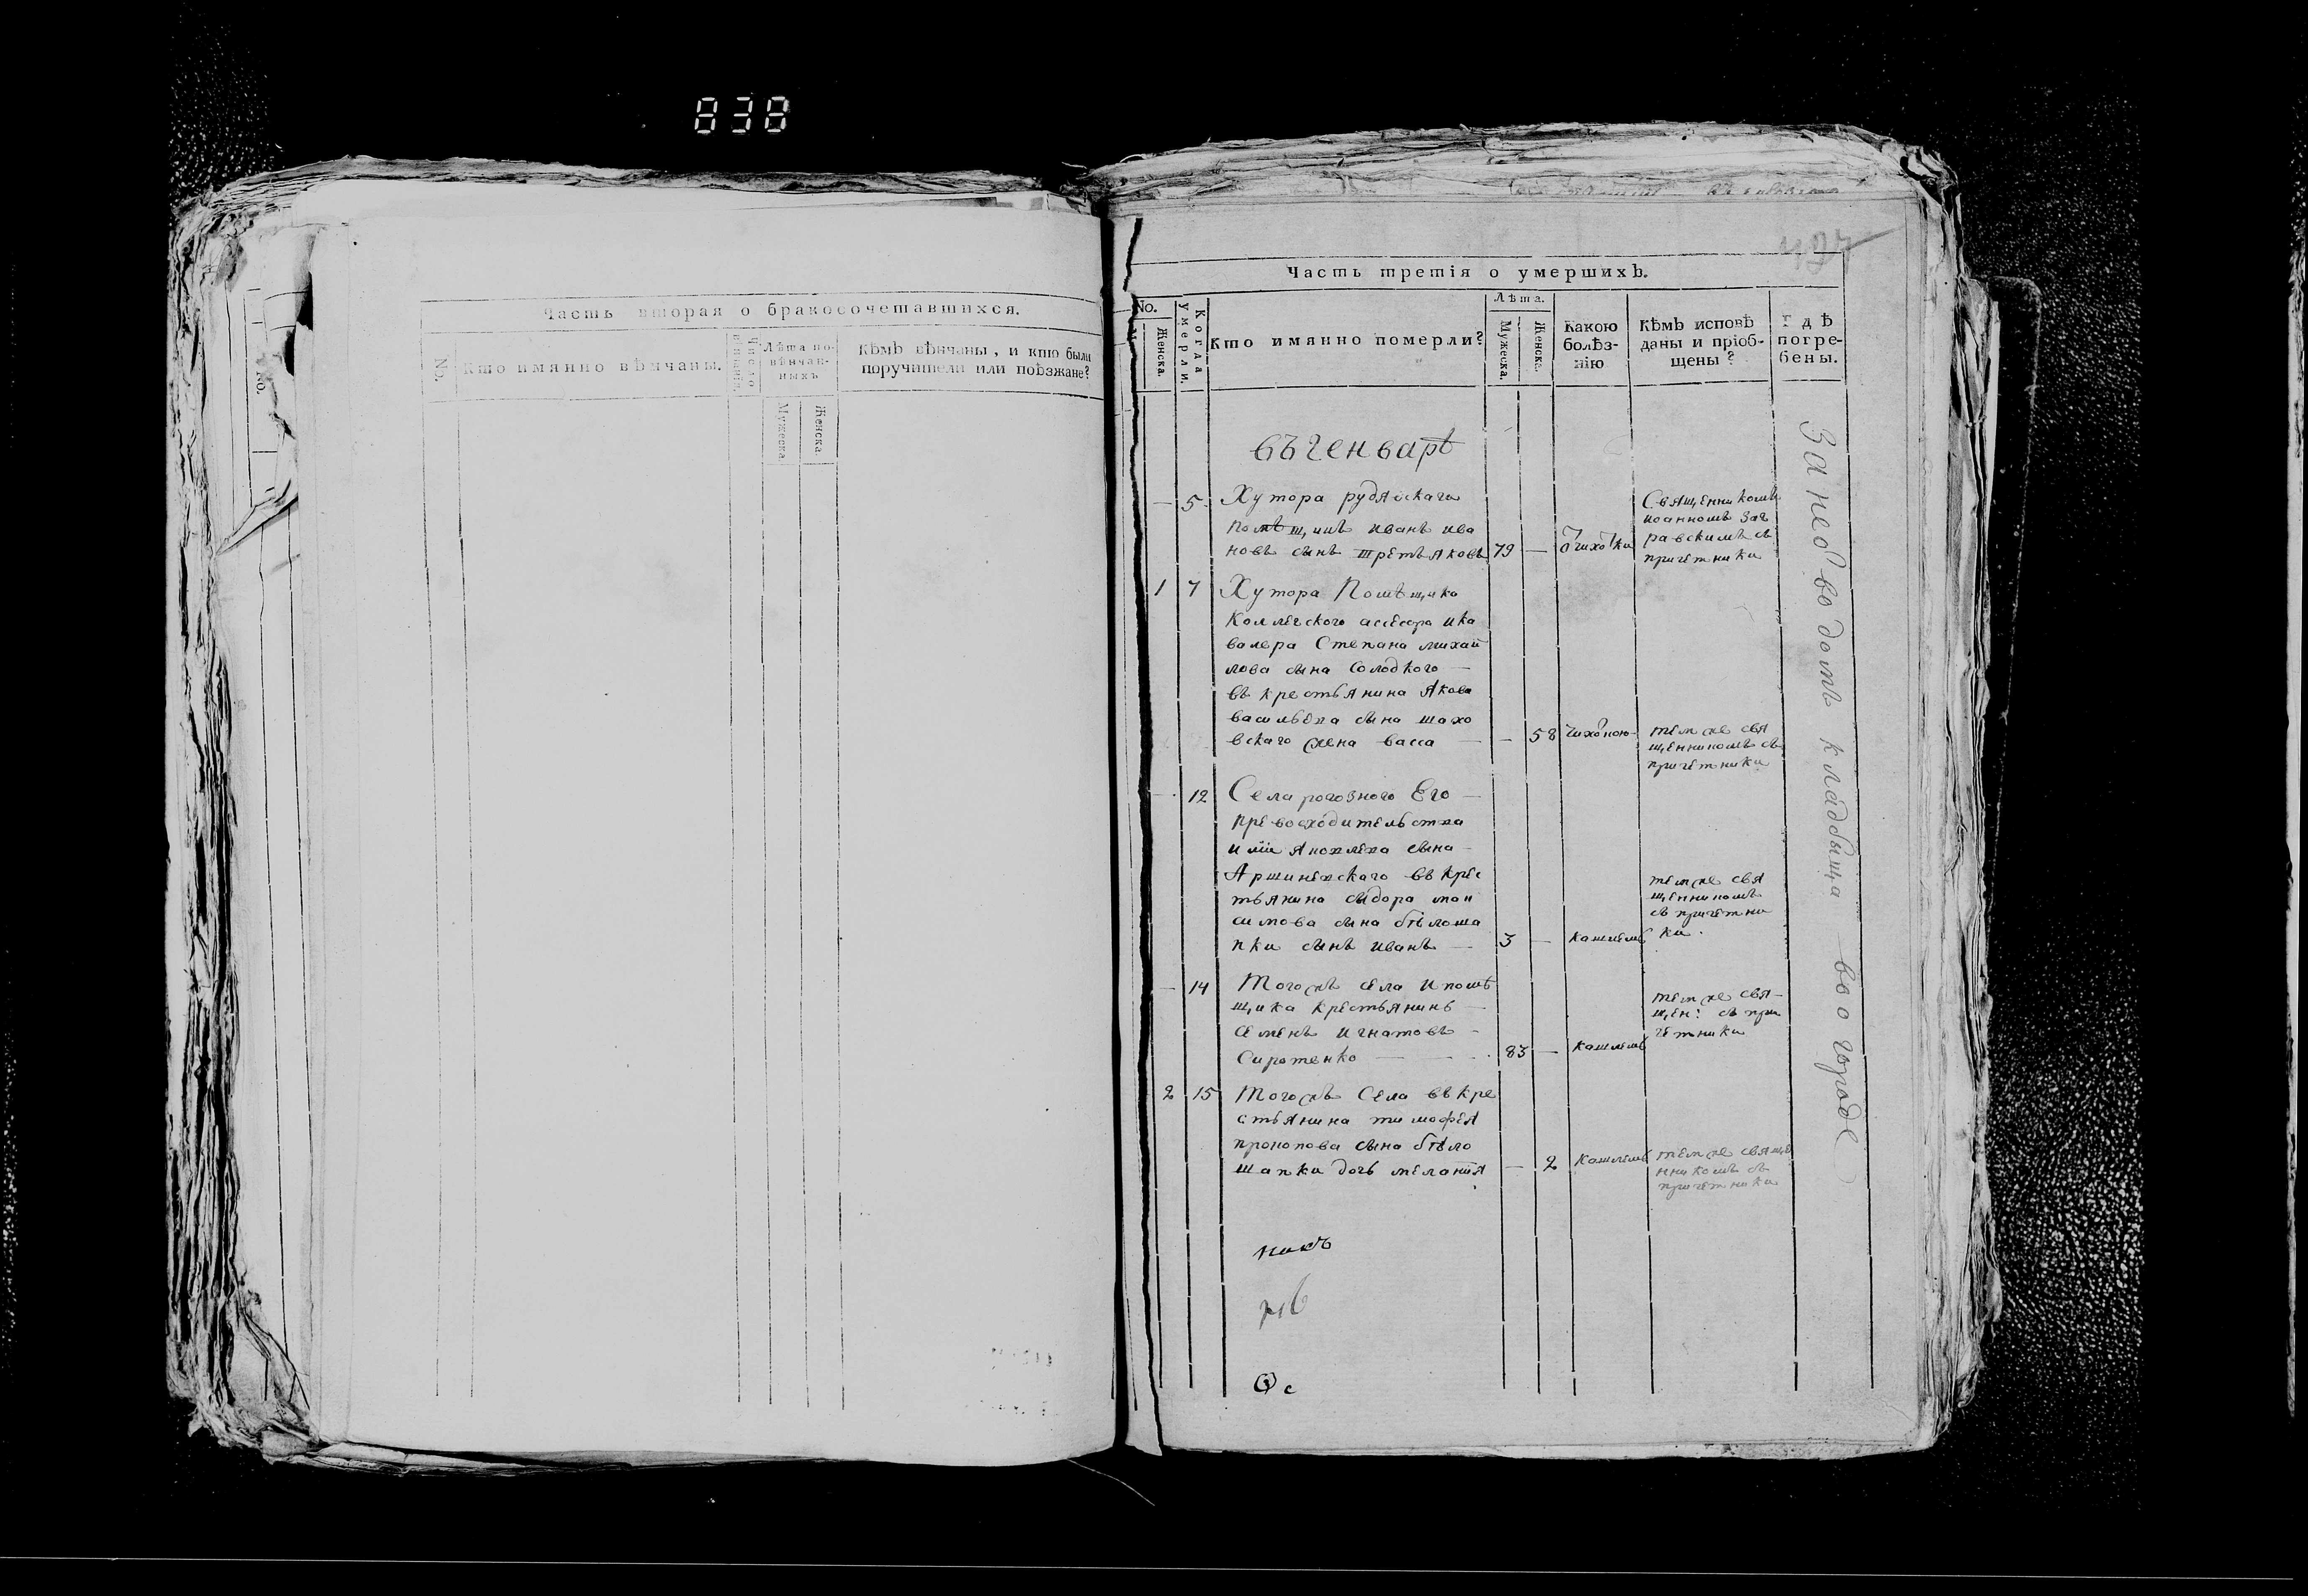 838
Часть вторая о бракосочетавшихся.
No.
Кто имянно вѣнчаны.
Число
Лѣта по-
вѣнчан-
ныхъ
Мужеска.
Женска.
Кѣмъ вѣнчаны, и кто были
поручители или поѣзжане?
No.
Часть третія о умершихъ.
No.
Женска.
Когда
умерли.
Кто имянно померли?
Лѣта.
Мужеска.
Женска.
Какою
болѣз-
нію
Кѣмъ исповѣ
даны и пріоб-
щены?
Гдѣ
погре-
бены.
въ генварѣ
— 5 Хутора
помѣщикъ иванъ ива
новъ сынъ третъяковъ 79 —
Священникомъ
иоанномъ заг
равскимъ съ
причетники
1 7 Хутора Помѣщика
Коллегского ассесора и ка
валера Степана михай
лова сына Солодкого —
въ крестьянина Якова
васильева сына шахо
вскаго жена васса — — 58 чихоткою
тем же свя
щенникомъ съ
причетники
— 12 Села рогозного Его —
превосходительства
Яковлева сына —
Аршиневского въ крес
тьянина сыдора мои
симова сына бѣлоша
пки сынъ иванъ — 3 — кашлемъ
тем же свя
щенникомъ
съ причетни
ки.
— 14 Тогожъ села и помѣ
щика крестьянинъ —
Семенъ игнатовъ —
Сиротенко — — 83 — кашлемъ
тем же свя-
щен: съ при
четники
2 15 Тогожъ Села въ кре
стьянина тимофея
прокопова сына бѣло
шапки дочь меланія — 2 кашлемъ
тем же свяще
нникомъ съ
причетники
За неб во домъ кладбыща — во огороде